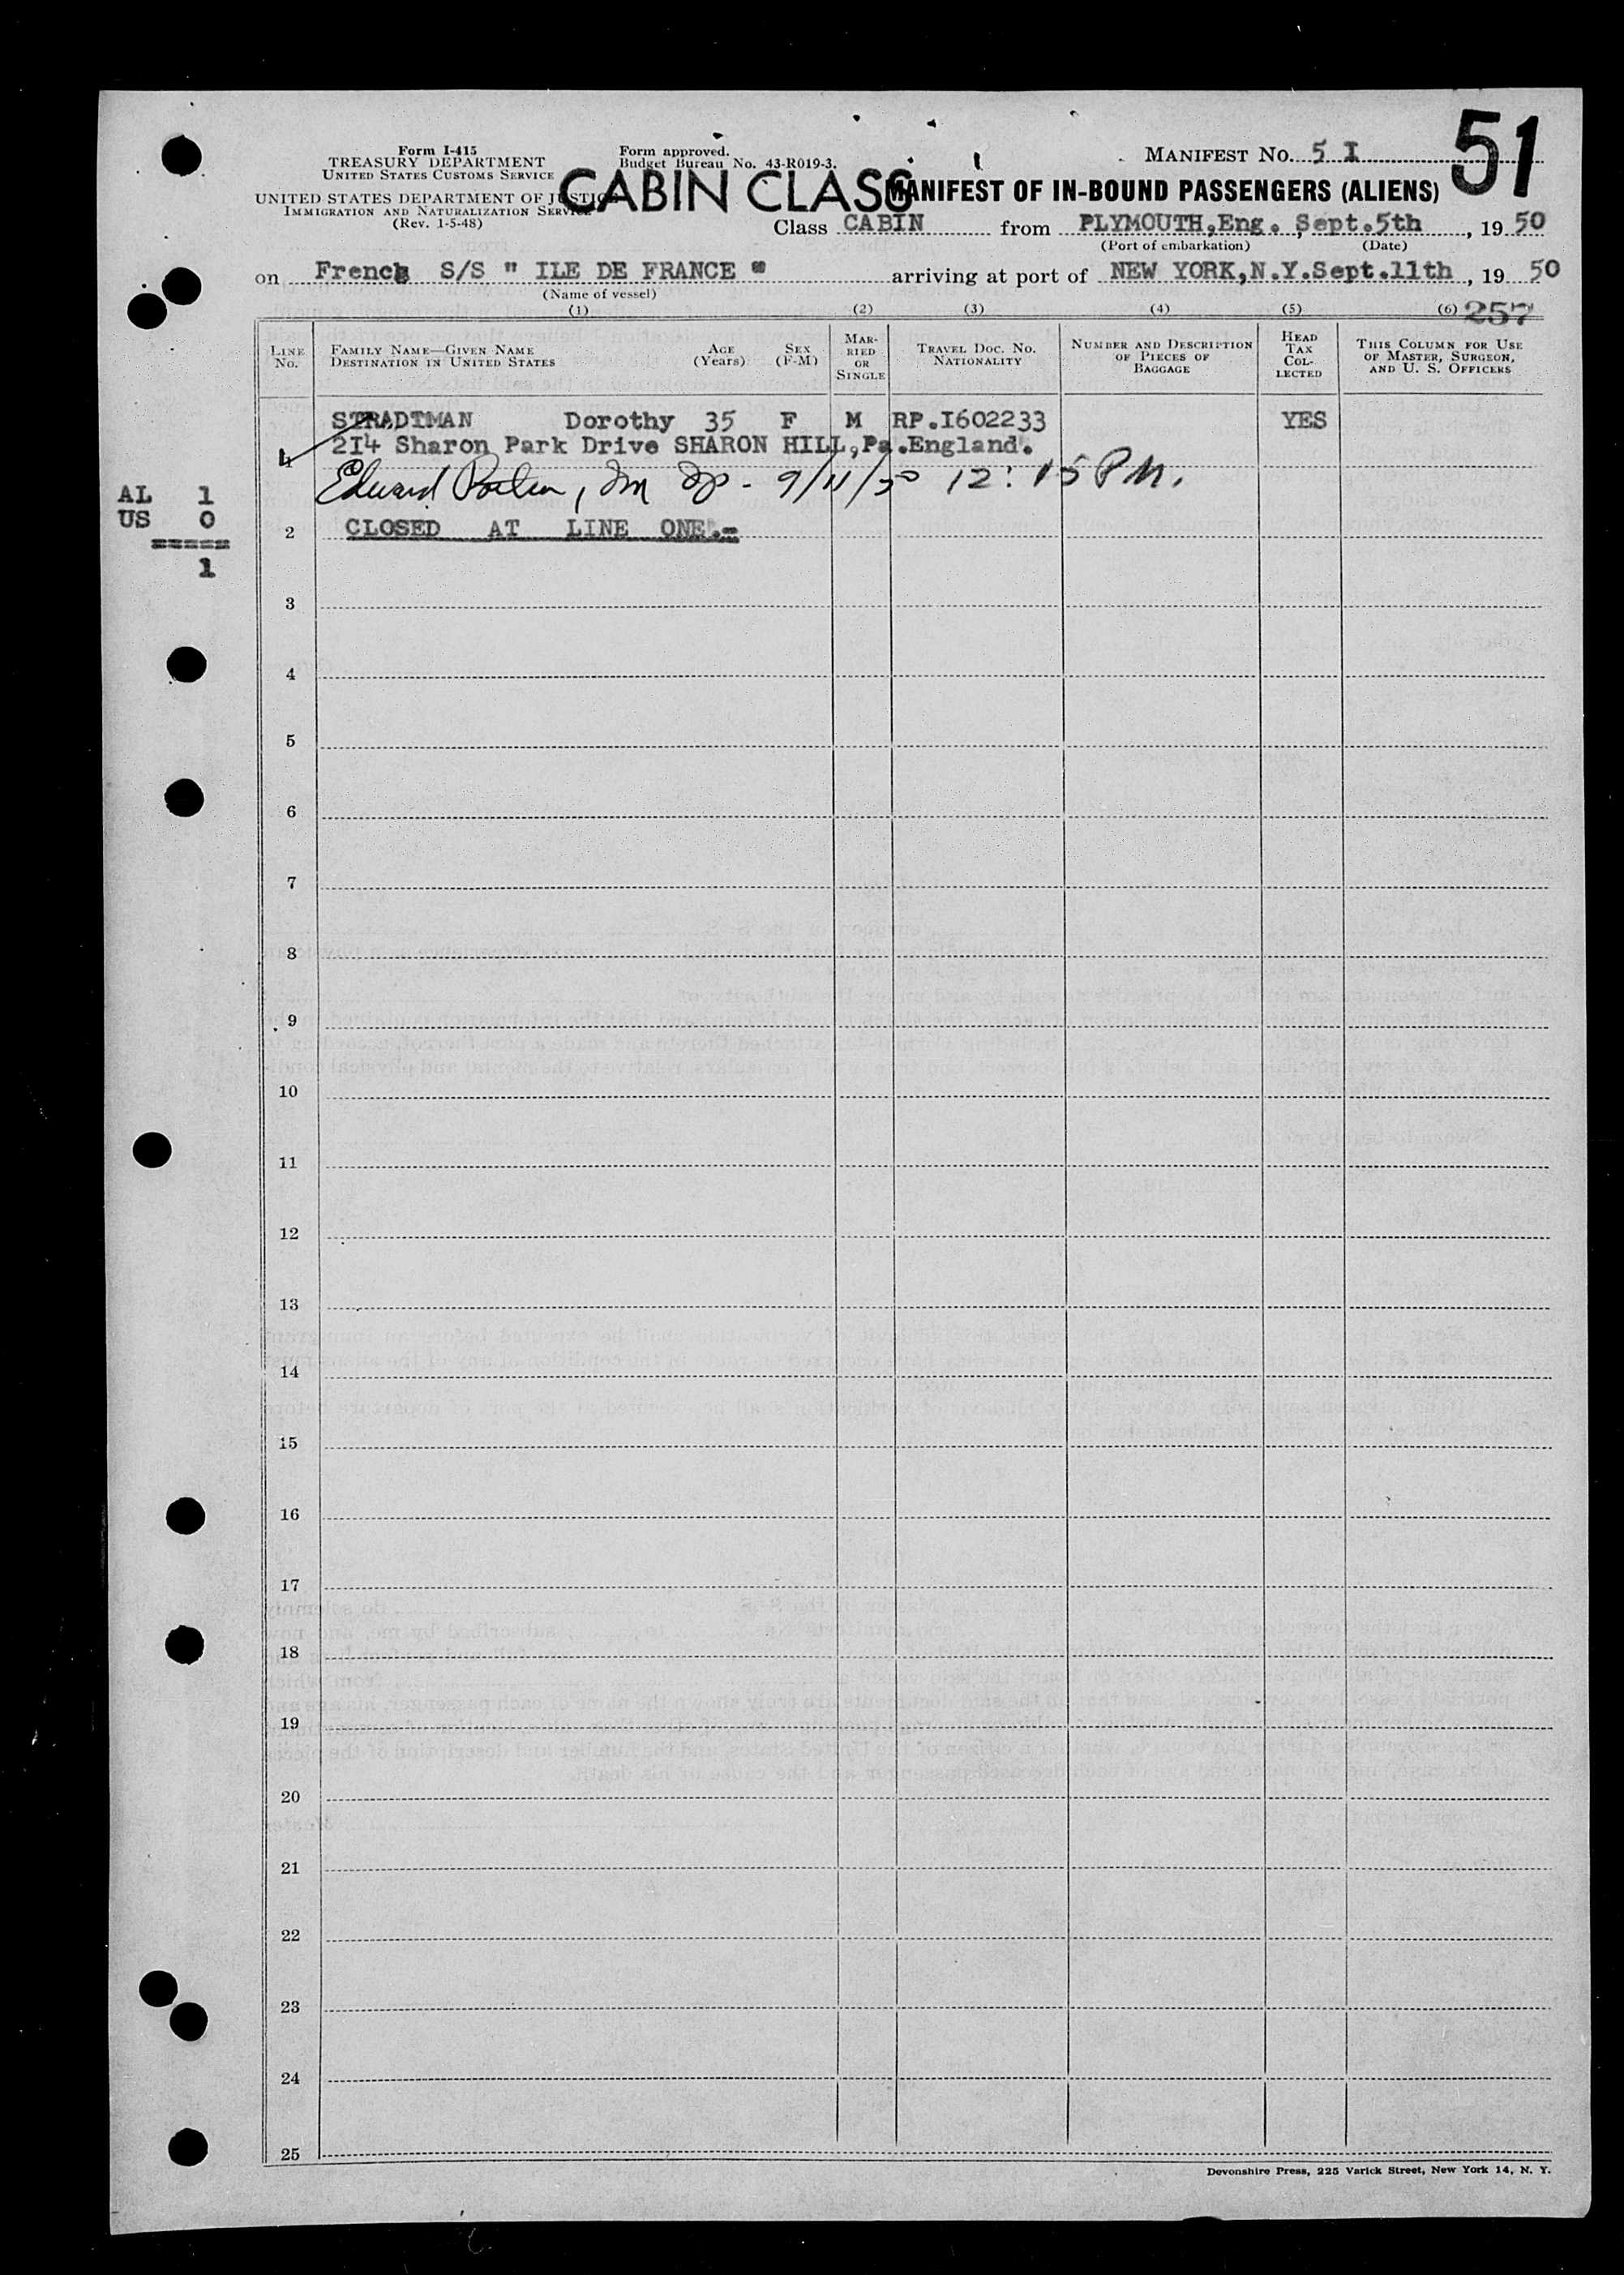 Form I-415
TREASURY DEPARTMENT
UNITED STATES CUSTOMS SERVICE
UNITED STATES DEPARTMENT OF JUSTICE
IMMIGRATION AND NATURALIZATION SERVICE
(Rev. 1-5-48)
Form approved.
Budget Bureau No. 43-R019-3.
CABIN CLASS
MANIFEST No. 5 I
51
MANIFEST OF IN-BOUND PASSENGERS (ALIENS)
Class CABIN from PLYMOUTH,Eng. , Sept.5th , 19 50
(Port of embarkation) (Date)
on French S/S " ILE DE FRANCE " arriving at port of NEW YORK,N.Y.Sept.11th , 19 50
(Name of vessel)
(1) (2) (3) (4) (5) (6) 257
LINE No. FAMILY NAME—GIVEN NAME DESTINATION IN UNITED STATES AGE (Years) SEX (F-M) MARRIED OR SINGLE TRAVEL DOC. NO. NATIONALITY NUMBER AND DESCRIPTION OF PIECES OF BAGGAGE HEAD TAX COLLECTED THIS COLUMN FOR USE OF MASTER, SURGEON, AND U. S. OFFICERS
STRADTMAN Dorothy 35 F M RP.I602233 YES
1 2I4 Sharon Park Drive SHARON HILL,Pa.England.
Edward 9/11/50 12:15 PM.
AL 1
US 0
=====
1
2 CLOSED AT LINE ONE.-
3
4
5
6
7
8
9
10
11
12
13
14
15
16
17
18
19
20
21
22
23
24
25
Devonshire Press, 225 Varick Street, New York 14, N. Y.